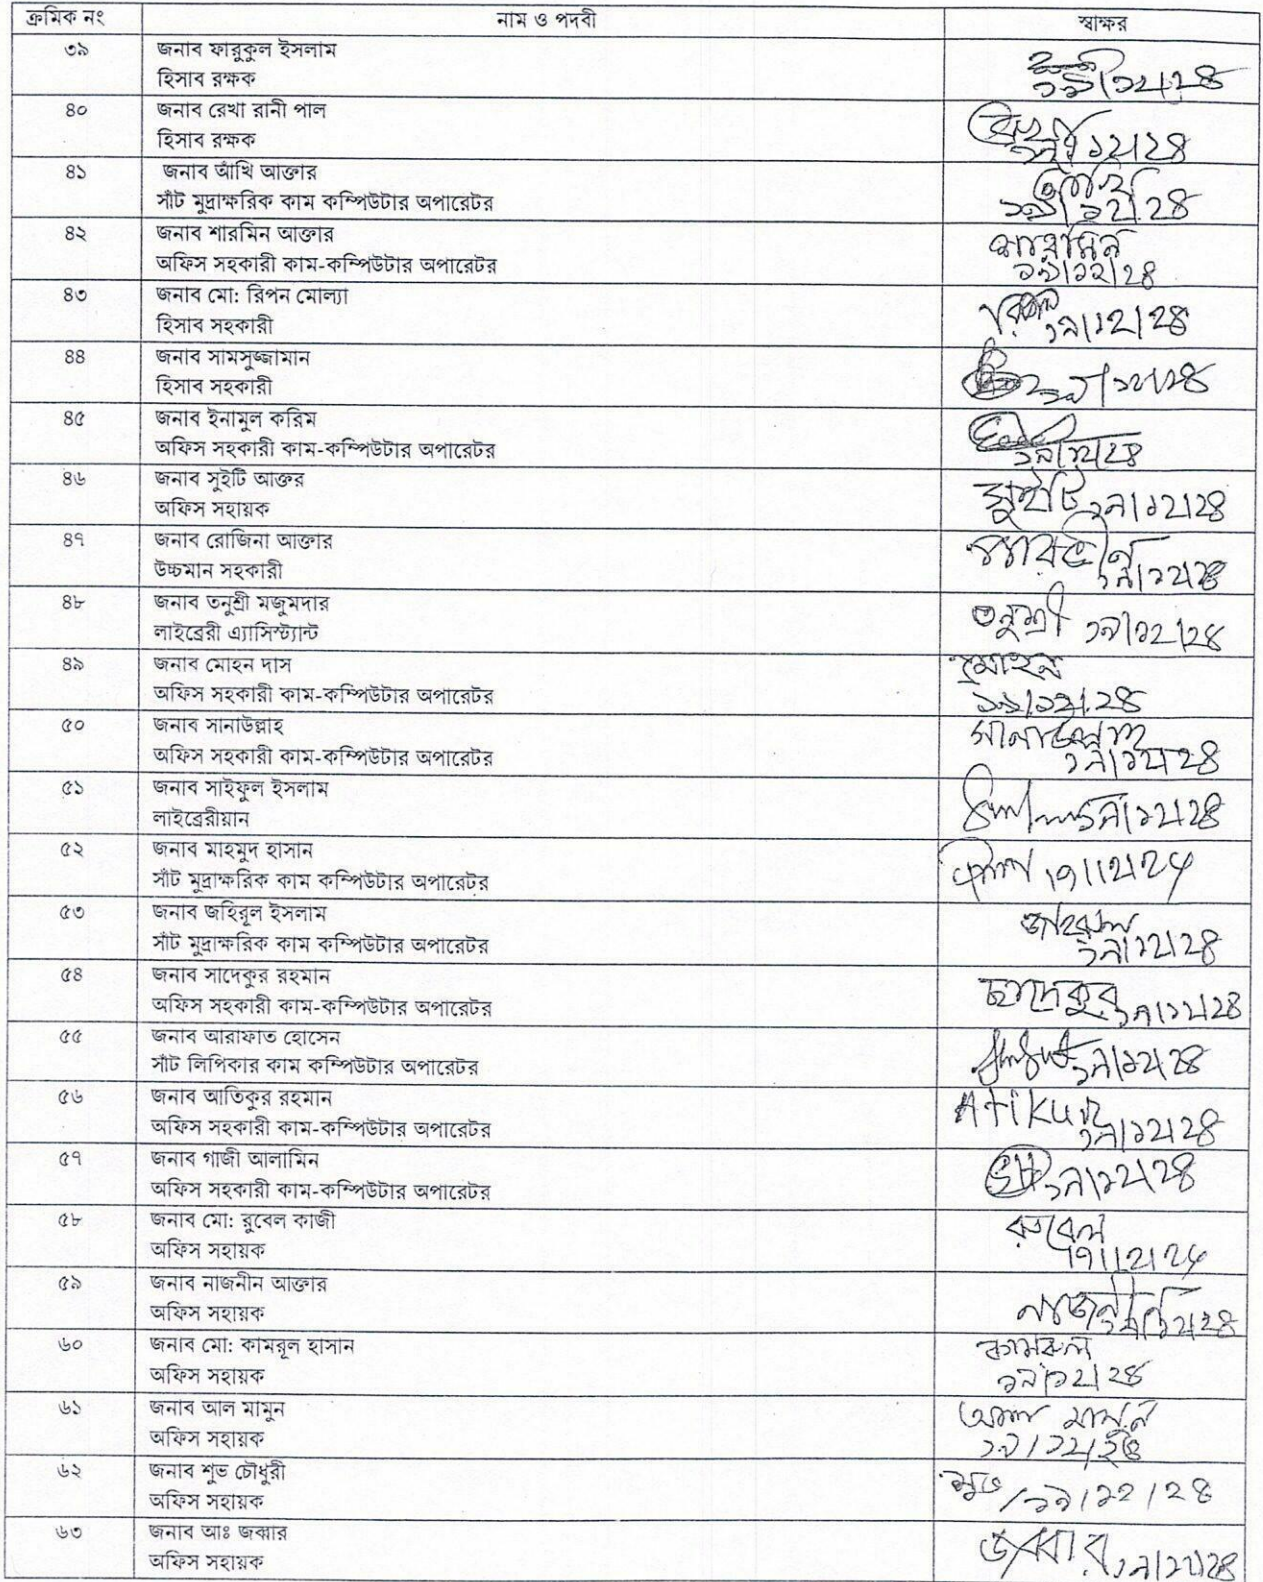 ক্রমিক নং নাম ও পদবী স্বাক্ষর
৩৯ জনাব ফারুকুল ইসলাম
হিসাব রক্ষক
১৯/১২/২৪
৪০ জনাব রেখা রানী পাল
হিসাব রক্ষক
১৯/১২/২৪
৪১ জনাব আঁখি আক্তার
সাঁট মুদ্রাক্ষরিক কাম কম্পিউটার অপারেটর
১৯/১২/২৪
৪২ জনাব শারমিন আক্তার শারমিন
অফিস সহকারী কাম-কম্পিউটার অপারেটর
১৯/১২/২৪
৪৩ জনাব মো: রিপন মোল্যা রিপন
হিসাব সহকারী ১৯/১২/২৪
৪৪ জনাব সামসুজ্জামান
হিসাব সহকারী ১৯/১২/২৪
৪৫ জনাব ইনামুল করিম
অফিস সহকারী কাম-কম্পিউটার অপারেটর ১৯/১২/২৪
৪৬ জনাব সুইটি আক্তর
অফিস সহায়ক সুইটি ১৯/১২/২৪
৪৭ জনাব রোজিনা আক্তার
উচ্চমান সহকারী ১৯/১২/২৪
৪৮ জনাব তনুশ্রী মজুমদার
লাইব্রেরী এ্যাসিস্ট্যান্ট তনুশ্রী ১৯/১২/২৪
৪৯ জনাব মোহন দাস মোহন
অফিস সহকারী কাম-কম্পিউটার অপারেটর ১৯/১২/২৪
৫০ জনাব সানাউল্লাহ সানাউল্লাহ
অফিস সহকারী কাম-কম্পিউটার অপারেটর ১৯/১২/২৪
৫১ জনাব সাইফুল ইসলাম
লাইব্রেরীয়ান ১৯/১২/২৪
৫২ জনাব মাহমুদ হাসান
সাঁট মুদ্রাক্ষরিক কাম কম্পিউটার অপারেটর 19/12/24
৫৩ জনাব জহিরুল ইসলাম জহিরুল
সাঁট মুদ্রাক্ষরিক কাম কম্পিউটার অপারেটর ১৯/১২/২৪
৫৪ জনাব সাদেকুর রহমান
অফিস সহকারী কাম-কম্পিউটার অপারেটর ছাদেকুর ১৯/১২/২৪
৫৫ জনাব আরাফাত হোসেন
সাঁট লিপিকার কাম কম্পিউটার অপারেটর ১৯/১২/২৪
৫৬ জনাব আতিকুর রহমান Atikur
অফিস সহকারী কাম-কম্পিউটার অপারেটর ১৯/১২/২৪
৫৭ জনাব গাজী আলামিন
অফিস সহকারী কাম-কম্পিউটার অপারেটর ১৯/১২/২৪
৫৮ জনাব মো: রুবেল কাজী রুবেল
অফিস সহায়ক 19/12/24
৫৯ জনাব নাজনীন আক্তার
অফিস সহায়ক নাজনীন ১৯/১২/২৪
৬০ জনাব মো: কামরুল হাসান কামরুল
অফিস সহায়ক ১৯/১২/২৪
৬১ জনাব আল মামুন আল মামুন
অফিস সহায়ক ১৯/১২/২৪
৬২ জনাব শুভ চৌধুরী
অফিস সহায়ক শুভ /১৯/১২/২৪
৬৩ জনাব আঃ জব্বার
অফিস সহায়ক জব্বার ১৯/১২/২৪